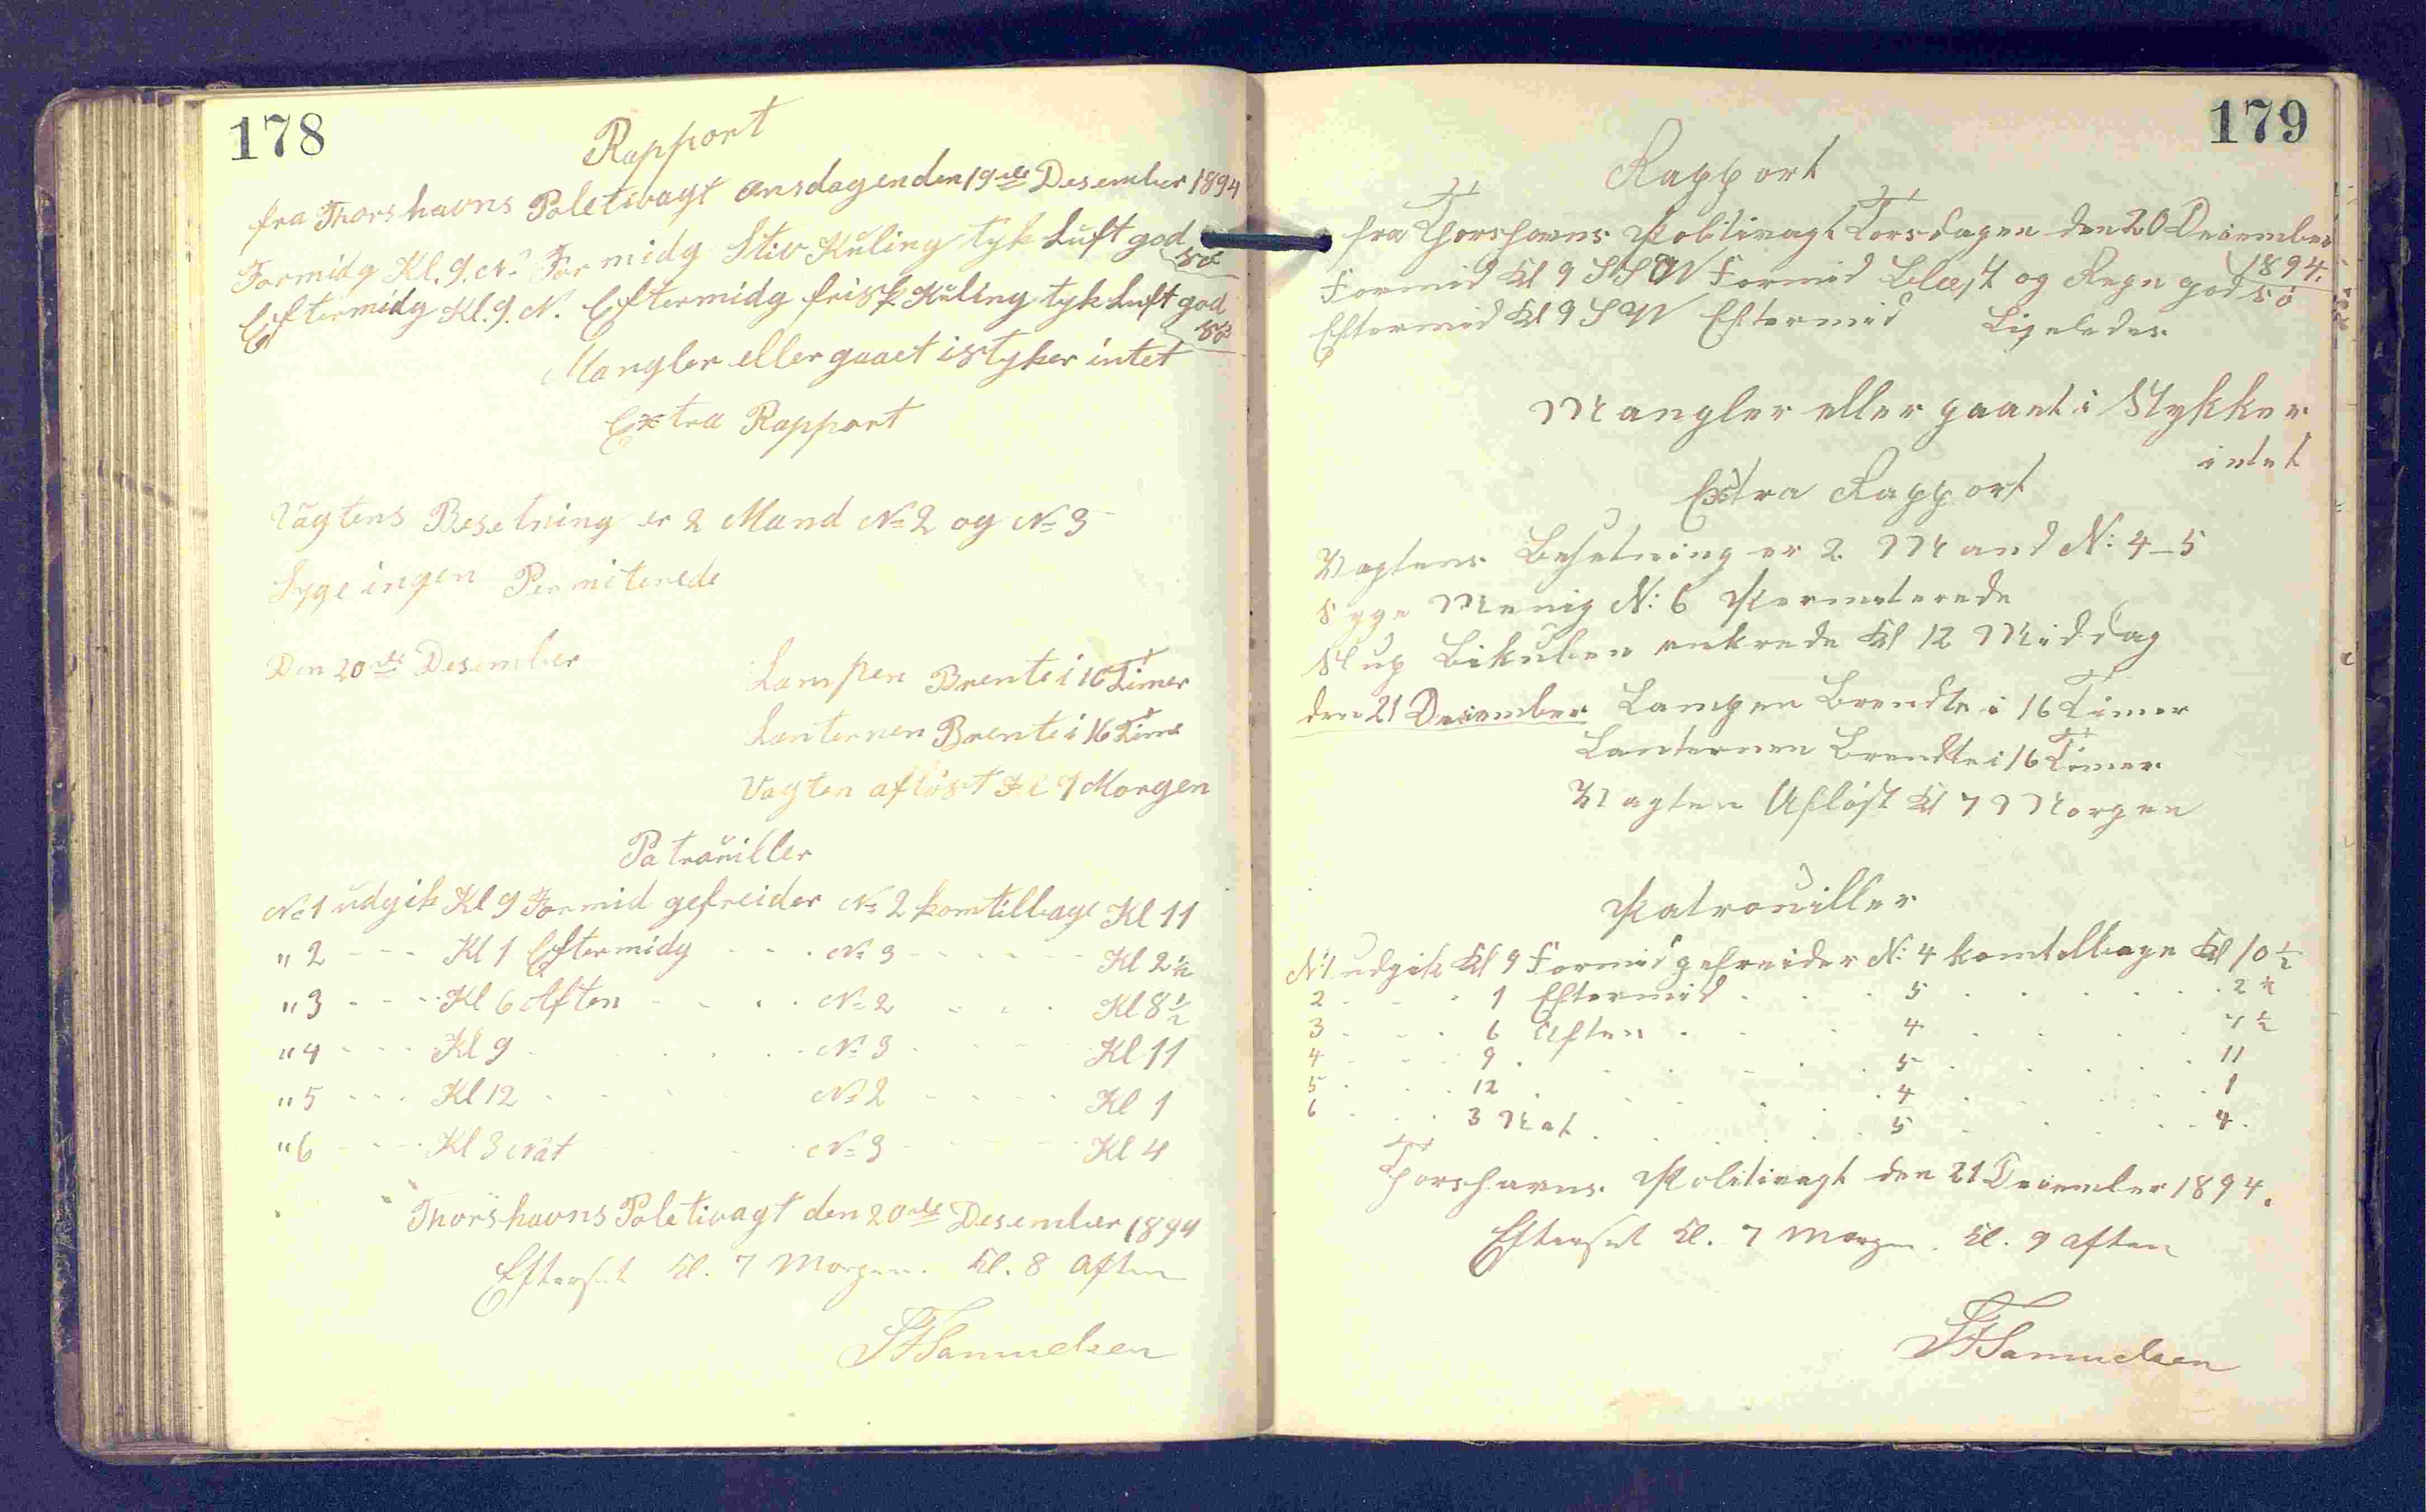 178
Rapport
fra Thorshavns Poletivagt onsdagen den 19de Desember 1894
Formidg Kl. 9. N. Formidg Stiv Kuling tyk Luft god
Sø
Eftermidg Kl. 9. N. Eftermidg frisk Kuling tyk Luft god
Sø
Mangler eller gaaet istyker intet
Extra Rapport
Vagtens Besetning er 2 Mand No 2 og No 3
Syge ingen Permiterede
Den 20de Desember
Lampen Brente i 16 Timer
Lanternen Brente i 16 Time
Vagten afløst Kl 7 Morgen
Patrauiller
No 1 udgik Kl 9 Formid gefreider No 2 kom tilbage Kl 11
" 2 - - - Kl 1 Eftermidg - - - No 3 - - - - - Kl 2 1/2
" 3 - - - Kl 6 Aften - - . . No 2 . . . Kl 8 1/2
" 4 - - - Kl 9 - . . . No 3 . - - - Kl 11
" 5 - - - Kl 12 - - - - No 2 - - - - Kl 1
" 6 - - - Kl 3 Nat - - - No 3 - - - Kl 4
Thorshavns Poletivagt den 20de Desember 1894
Efterset Kl. 7 Morgen. Kl. 8 Aften
SFSamuelsen
179
Rapport
fra Thorshavns Politivagt Torsdagen den 20 December
1894.
Formid Kl 9 SSW Formid Blæst og Regn god sø
Eftermid Kl 9 SW Eftermid Ligeledes
Mangler eller gaaet i Stykker
intet
Extra Rapport
Vagtens Besetning er 2 Mand N: 4-5
Syge Menig N: 6 Permeterede
Slup Bikuben ankrede Kl 12 Middag
den 21 December Lampen Brendte i 16 Timer
Lanternen Brendte i 16 Timer
Vagten Afløst Kl 7 Morgen
Patrouiller
N: 1 udgik Kl 9 Formid gefreider N: 4 kom tilbage Kl 10 1/2
2 - - - 1 Eftermid . . . 5 . . . . . 2 1/2
3 - - - 6 Aften . . . 4 . . . . 7 1/2
4 - - - 9 . . . . 5 . . . . 11
5 . . . 12 . . . . 4 . . . . 1
6 . . . 3 Nat . . . . 5 . . . . 4.
Thorshavns Politivagt den 21 December 1894.
Efterset Kl. 7 Morgen. Kl. 9 Aften
SFSamuelsen